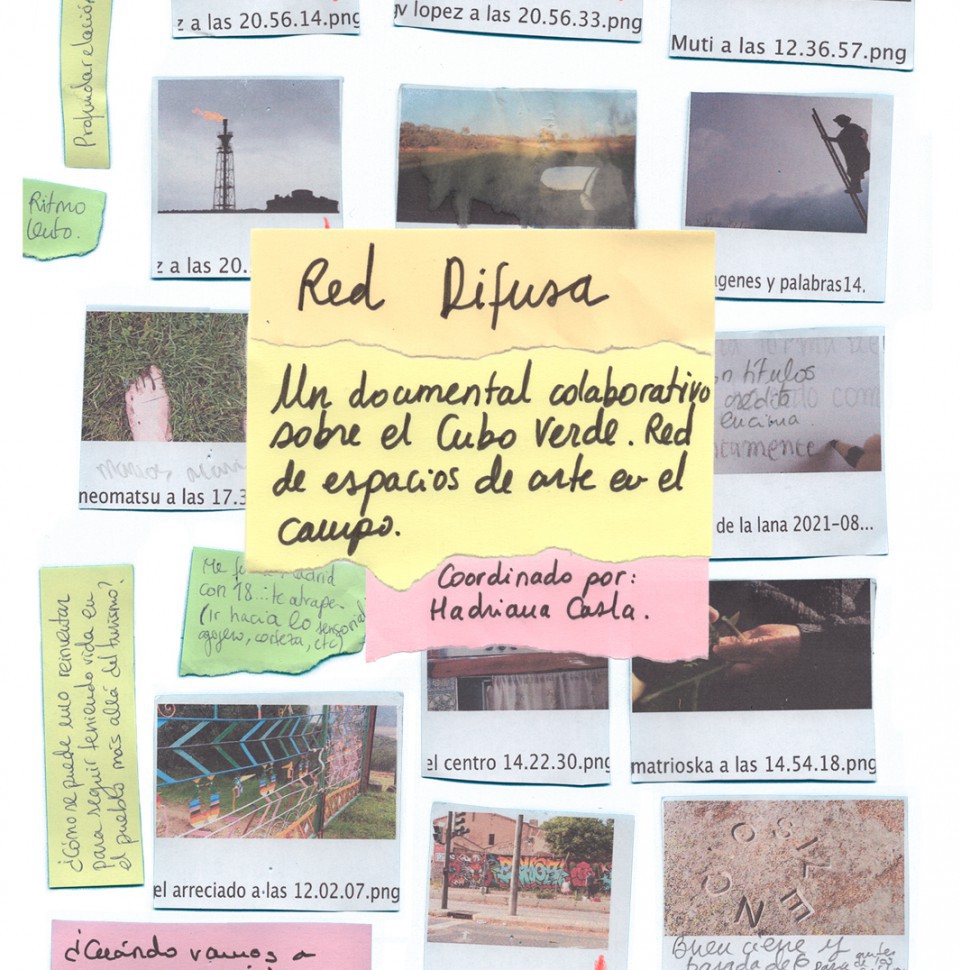 z a las 20.56.14.png
gv lopez a las 20.56.33.png
Muti a las 12.36.57.png
Profundar relación
Ritmo
lento.
z a las 20.
agenes y palabras14.
Red Difusa
Un documental colaborativo
sobre el Cubo Verde. Red
de espacios de arte en el
campo.
Coordinado por:
Hadriana Casla.
neomatsu a las 17.3
títulos
encima.
de la lana 2021-08...
Me Madrid
con 18...: te atrape
(Ir hacia lo sensorial
corteza, etc)
¿Cómo se puede uno reinventar
para seguir teniendo vida en
el pueblo más allá del turismo?
el centro 14.22.30.png
matrioska a las 14.54.18.png
el arreciado a las 12.02.07.png
Buen cierre y
¿Cuándo vamos a